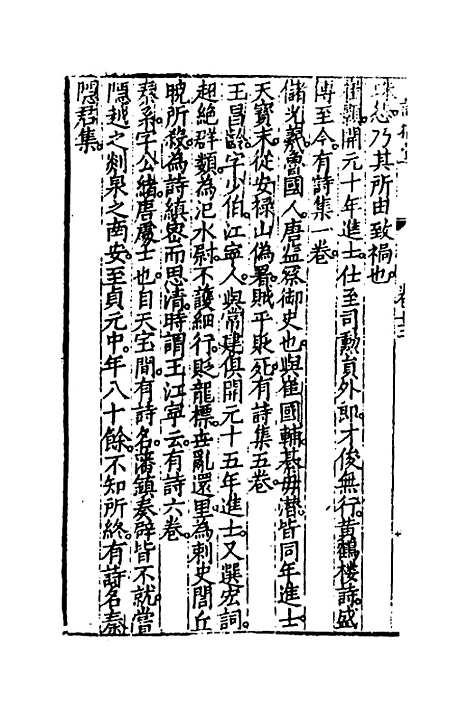 忿乃其所由致禍也
崔顥開元十年進士仕至司勳員外郎才俊無行黃鶴樓詩盛
傳至今有詩集一卷
儲光羲魯國人唐监察御史也與崔國輔綦毋潛皆同年進士
天寶末從安祿山偽署賊平貶死有詩集五卷
王昌齡字少伯江寧人與常建俱開元十五年進士又選宏詞
超絕群類為汜水尉不護細行貶龍標世亂還里為刺史閭丘
曉所殺為詩縝密而思清時謂王江寧云有詩六卷
秦系字公緒唐處士也自天宝間有詩名藩鎮奏辟皆不就嘗
隱越之剡泉之南安至貞元中年八十餘不知所終有詩名秦
隱君集